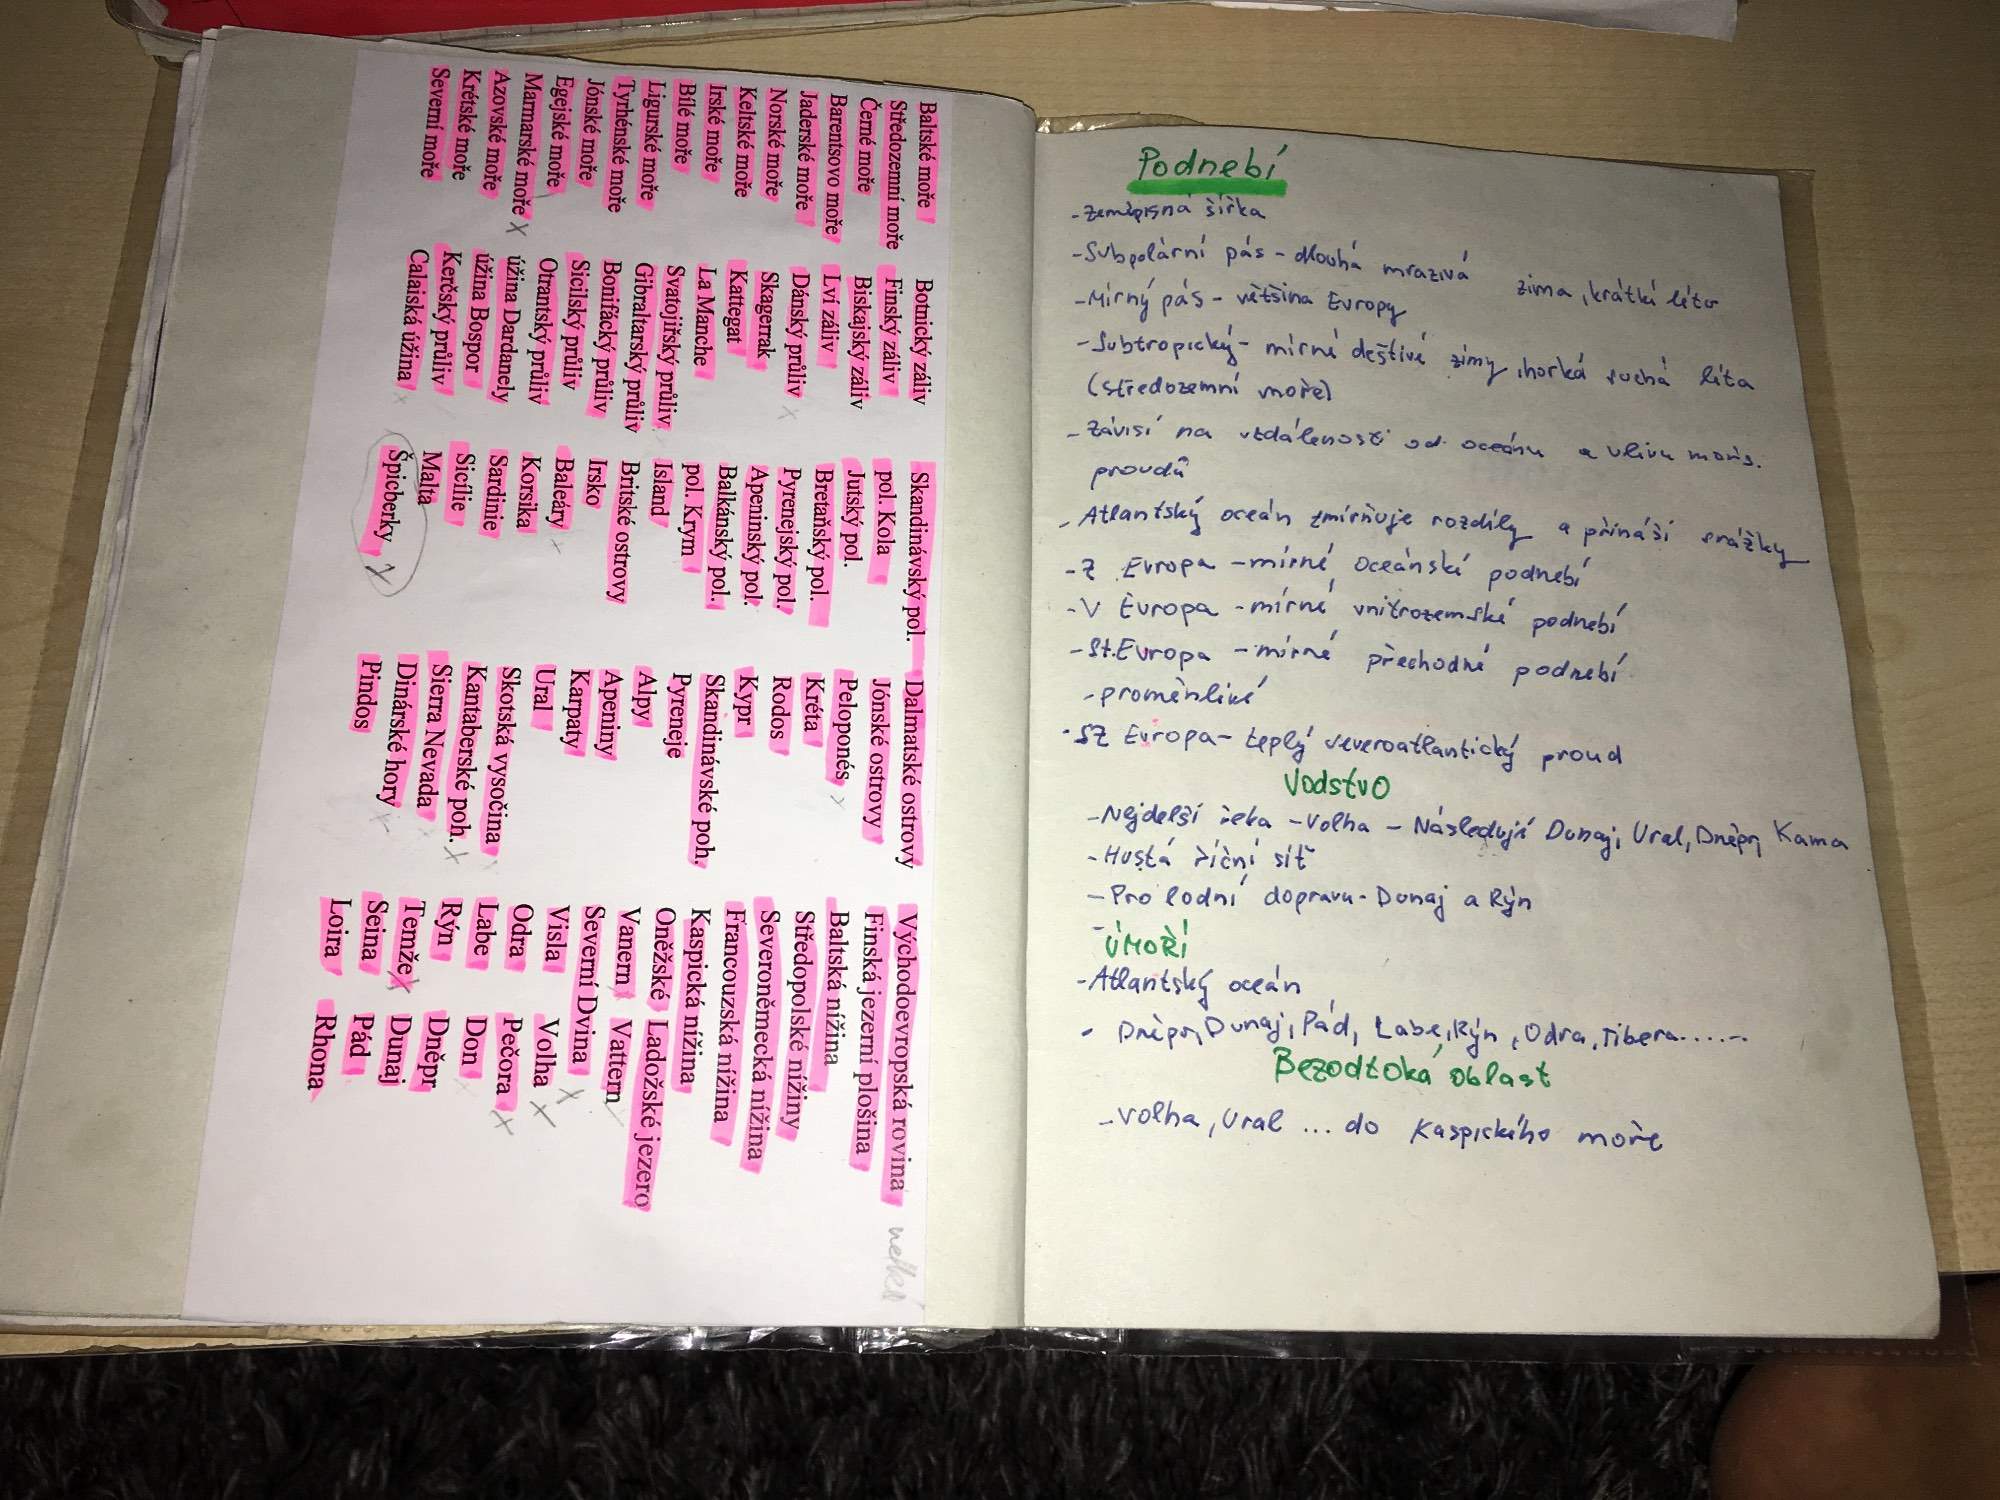 Baltské moře
Středozemní moře
Černé moře
Barentsovo moře
Jaderské moře
Norské moře
Keltské moře
Irské moře
Bílé moře
Ligurské moře
Tyrhénské moře
Jónské moře
Egejské moře
Marmarské moře x
Azovské moře
Krétské moře
Severní moře
Botnický záliv
Finský záliv
Biskajský záliv
Lví záliv
Dánský průliv x
Skagerrak
Kattegat
La Manche
Svatojiřský průliv
Gibraltarský průliv
Bonifácký průliv
Sicilský průliv
Otrantský průliv
úžina Dardanely
úžina Bospor
Kerčský průliv
Calaiská úžina x
Skandinávský pol.
pol. Kola
Jutský pol.
Bretaňský pol.
Pyrenejský pol.
Apeninský pol.
Balkánský pol.
pol. Krym
Island
Britské ostrovy
Irsko
Baleáry x
Korsika
Sardinie
Sicílie
Malta
Špicberky x
Dalmatské ostrovy
Jónské ostrovy
Peloponés x
Kréta
Rodos
Kypr
Skandinávské poh.
Pyreneje
Alpy
Apeniny
Karpaty
Ural
Skotská vysočina x
Kantaberské poh. x
Sierra Nevada x
Dinárské hory x
Pindos
Východoevropská rovina
Finská jezerní plošina
Baltská nížina
Středopolské nížiny
Severoněmecká nížina
Francouzská nížina
Kaspická nížina
Oněžské Ladožské jezero
Vanern Vattern
Severní Dvina x
Visla Volha x
Odra Pečora x
Labe Don
Rýn Dněpr
Temže x Dunaj
Seina Pád
Loira Rhona
Podnebí
- zeměpisná šířka
- Subpolární pás - dlouhá mrazivá zima, krátké léto
- Mírný pás - většina Evropy
- Subtropický - mírné deštivé zimy, horká suchá léta
(středozemní moře)
- Závisí na vzdálenosti od oceánu a vlivu mořs.
proudů
- Atlantský oceán zmírňuje rozdíly a přináší srážky
- Z Evropa - mírné oceánské podnebí
- V Evropa - mírné vnitrozemské podnebí
- St. Evropa - mírné přechodné podnebí
- proměnlivé
- SZ Evropa - teplý severoatlantický proud
Vodstvo
- Nejdelší řeka - Volha - Následují Dunaj, Ural, Dněpr, Kama
- Hustá říční síť
- Pro lodní dopravu - Dunaj a Rýn
-
ÚMOŘÍ
- Atlantský oceán
- Dněpr, Dunaj, Pád, Labe, Rýn, Odra, Tibera......
Bezodtoká oblast
- Volha, Ural ... do Kaspického moře